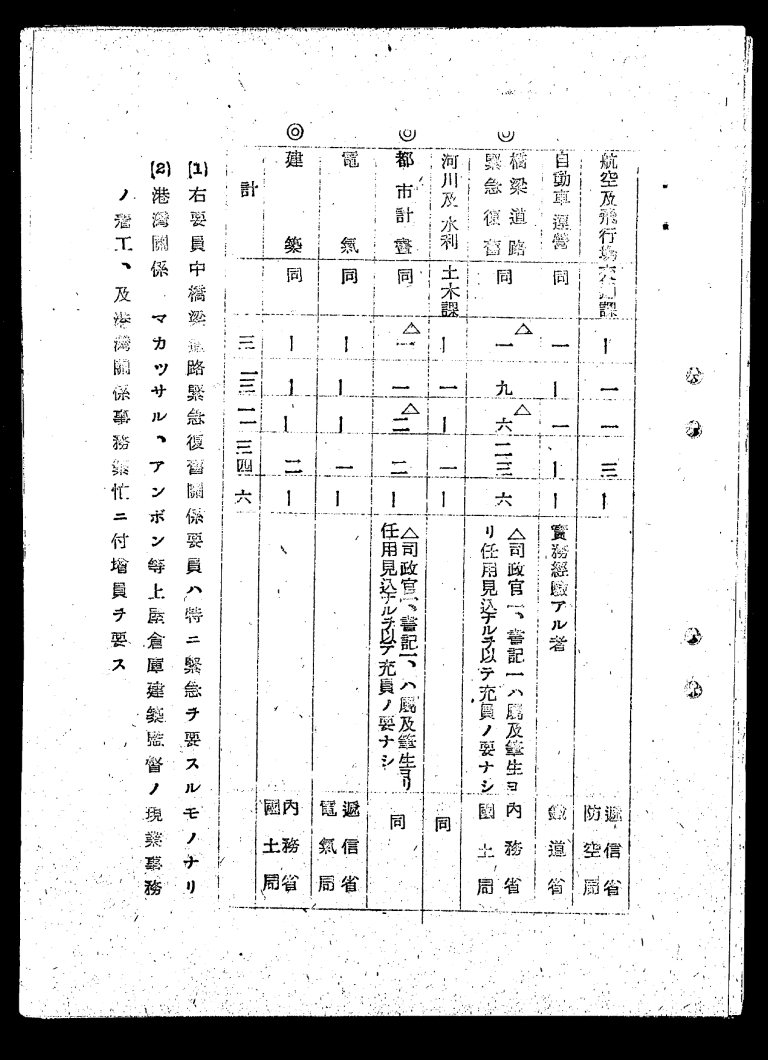 航空及飛行場 交通課 | 一 一 三 | 遞信省 防空局
自動車運營 同 一 | 一 | | 實務經驗アル者 鐵道省
橋梁道路 緊急復舊 同 △一 九 △六 二三 六 △司政官一、書記一ハ屬及筆生ヨ
リ任用見込ナルヲ以テ充員ノ要ナシ 內務省 國土局
河川及水利 土木課 | 一 | 一 | 同
◎ 都市計畫 同 △一 一 △二 二 | △司政官一、書記一、ハ屬及筆生ヨリ
任用見込ナルヲ以テ充員ノ要ナシ 同
電氣 同 | | | 一 | 遞信省 電氣局
◎ 建築 同 | | | 二 | 內務省 國土局
計 三 一三 一一 三四 六
(1) 右要員中橋梁道路緊急復舊關係要員ハ特ニ緊急ヲ要スルモノナリ
(2) 港灣關係 マカツサル、アンボン等上屋倉庫建築監督ノ現業事務
ノ 工、及港灣關係事務繁忙ニ付增員ヲ要ス